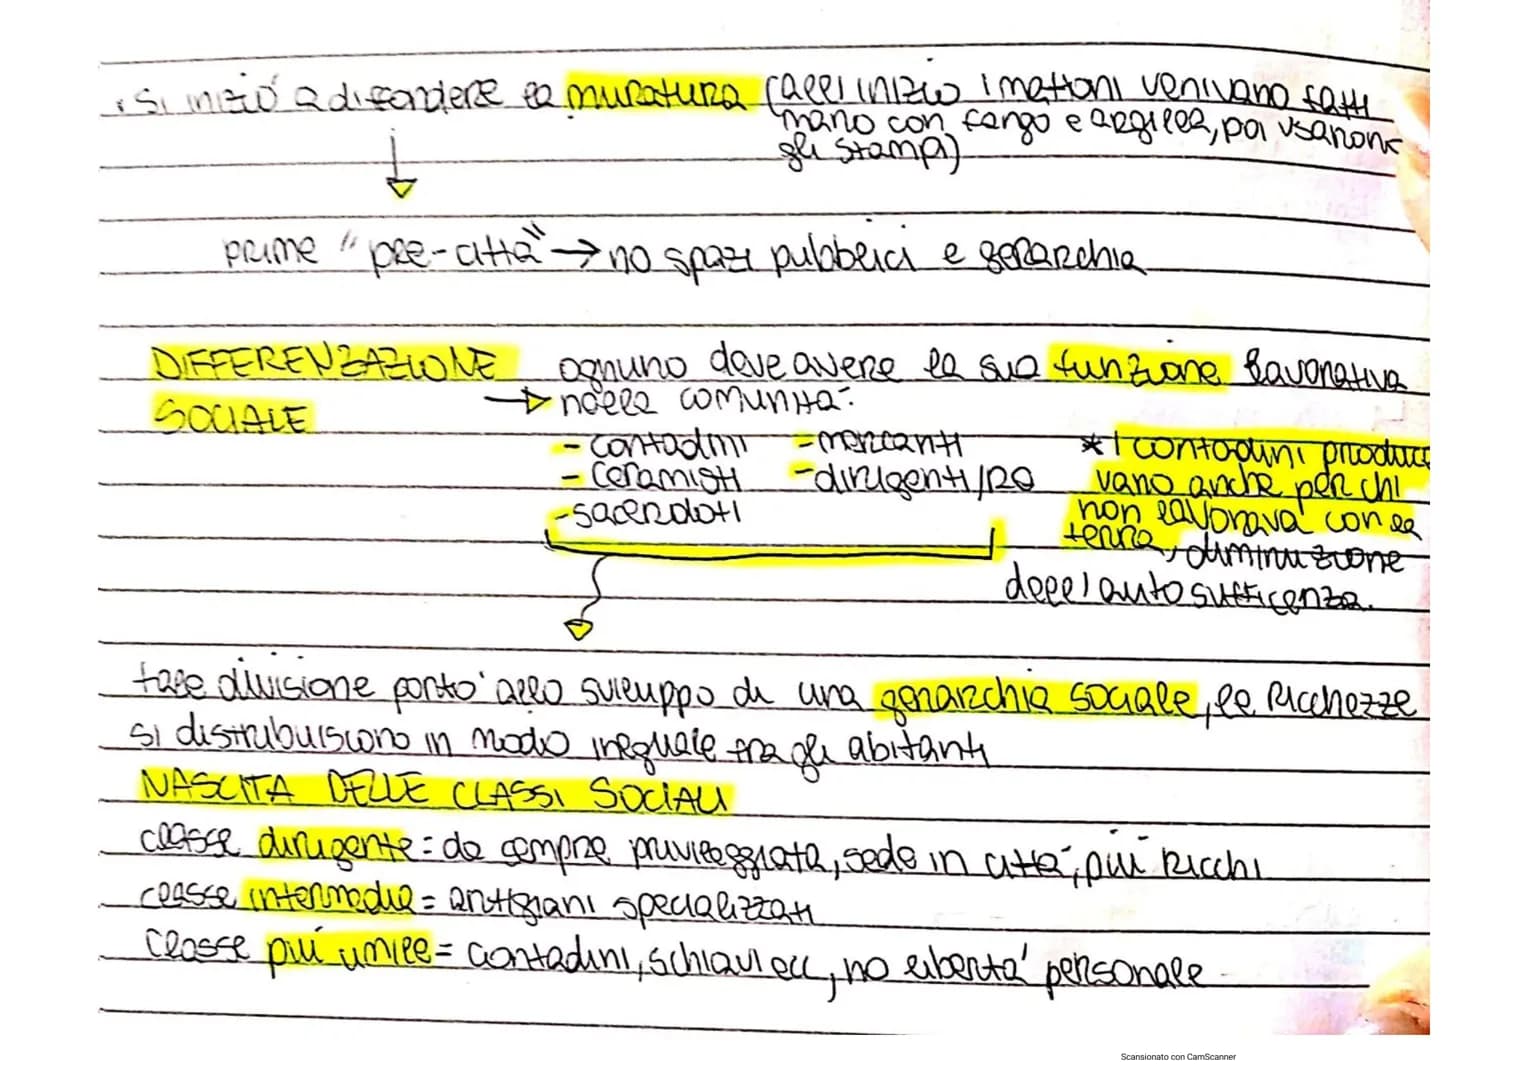 . Si iniziò a diffondere la muratura (all'inizio i mattoni venivano fatti
mano con fango e argilla, poi usarono
gli stampi)
prime "pre-città" → no spazi pubblici e gerarchia
DIFFERENZAZIONE
SOCIALE
ognuno deve avere la sua funzione lavorativa
→ nella comunità:
- contadini
- mercanti
- ceramisti
- dirigenti/re
- sacerdoti
* I contadini produce
vano anche per chi
non lavorava con la
terra, diminuzione
dell'autosufficenza.
tale divisione portò allo sviluppo di una gerarchia sociale, le ricchezze
si distribuiscono in modo ineguale tra gli abitanti
NASCITA DELLE CLASSI SOCIALI
classe dirigente = da sempre privileggiata, sede in città, più ricchi
classe intermedia = artigiani specializzati
classe più umile = contadini, schiavi ecc, no libertà personale
Scansionato con CamScanner